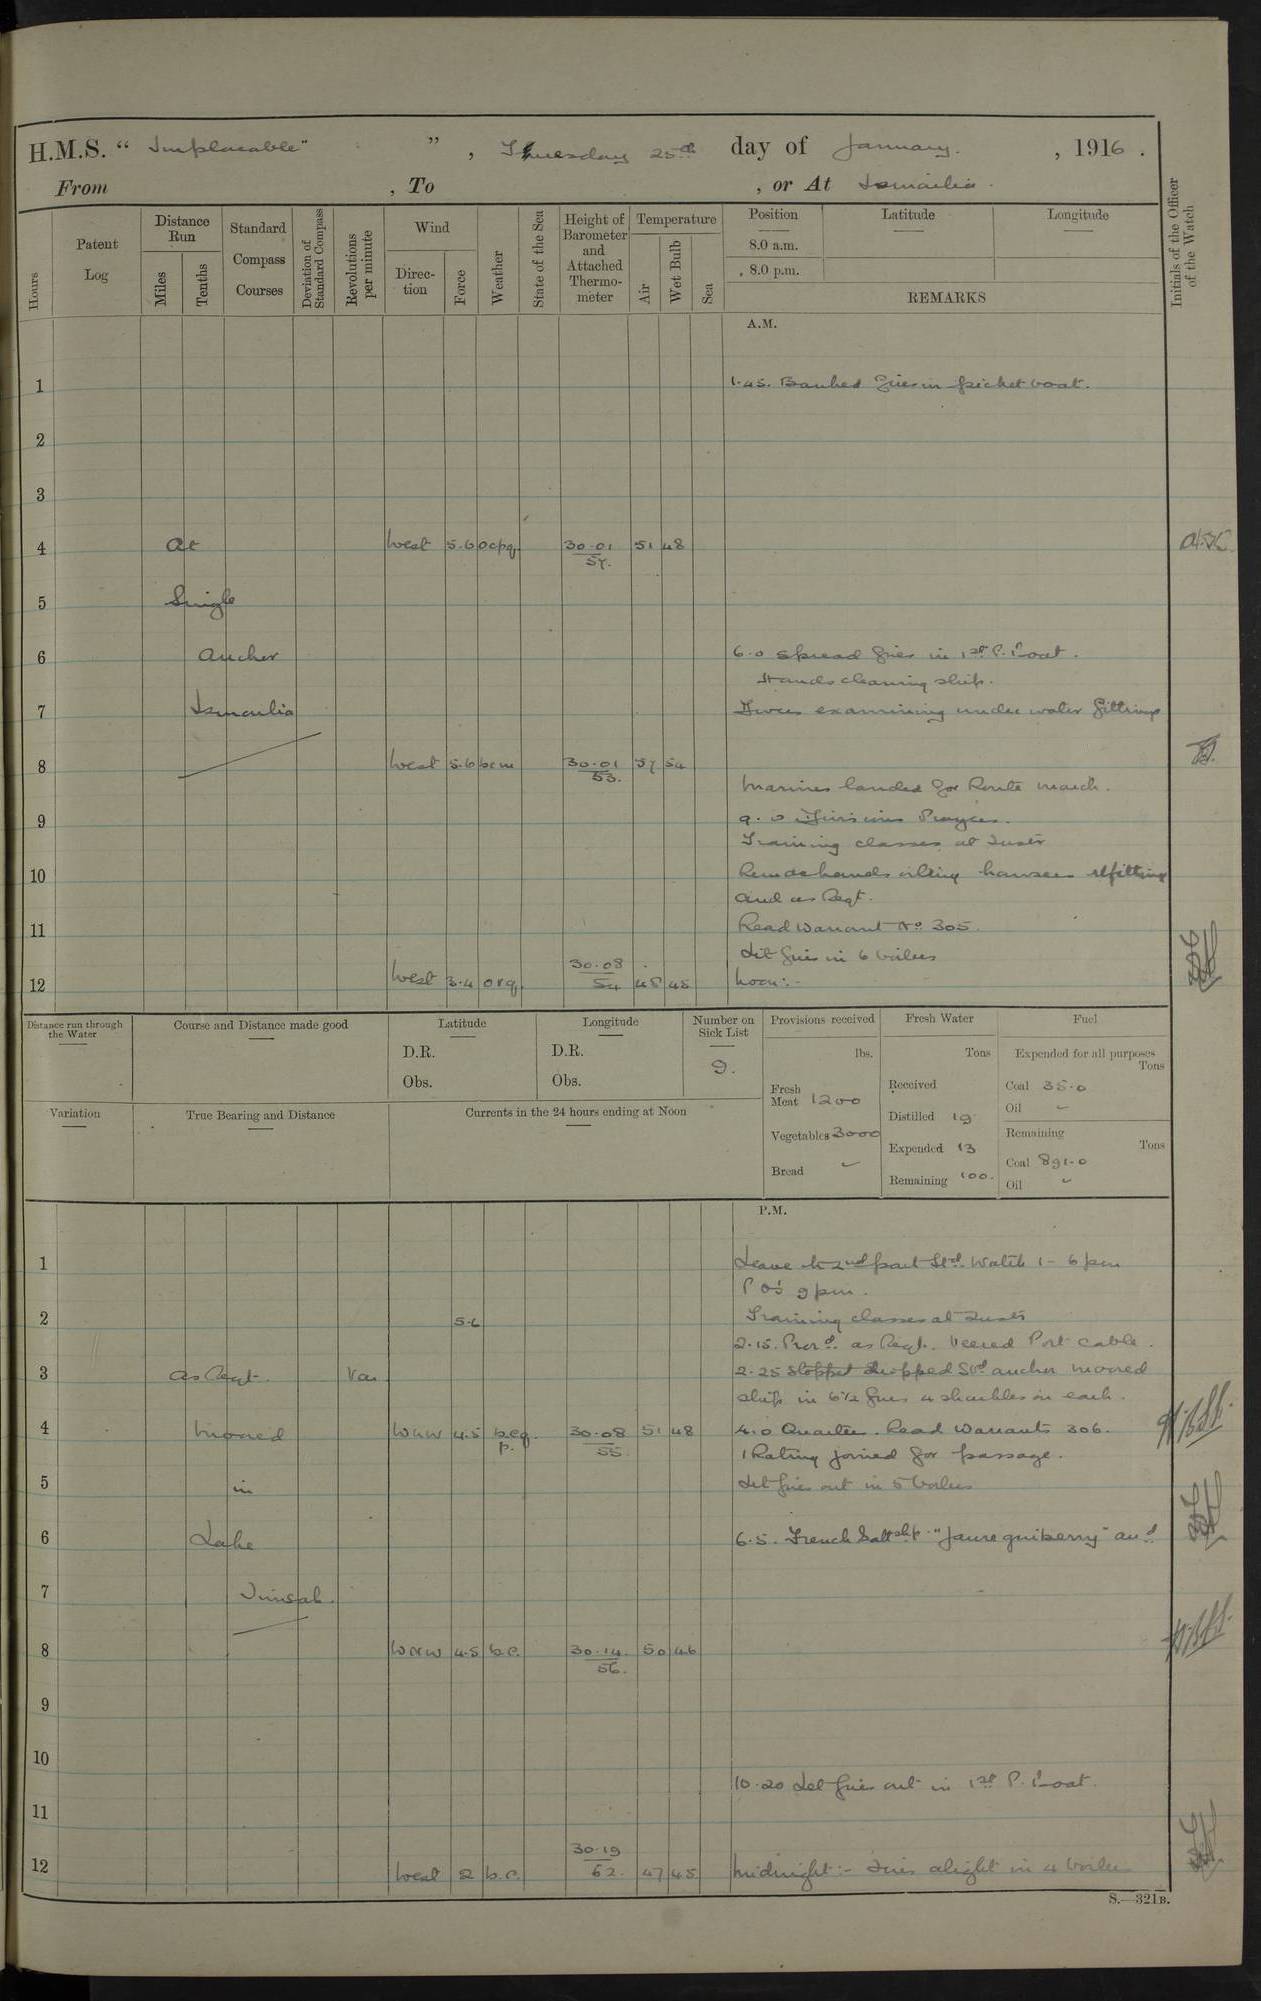 H.M.S. "Implacable" ", Tuesday 25th day of January. , 1916.
From , To , or At Ismailia.
Hours
Patent Log
Distance Run
Miles
Tenths
Standard Compass Courses
Deviation of Standard Compass
Revolutions per minute
Wind
Direction
Force
Weather
State of the Sea
Height of Barometer and Attached Thermometer
Temperature
Air
Wet Bulb
Sea
Position
Latitude
Longitude
8.0 a.m.
8.0 p.m.
REMARKS
Initials of the Officer of the Watch
A.M.
1 1.45. Banked fires in picket boat.
2
3
4 At West 5.6 ocpq 30.01 57. 51 48
5 Single
6 Anchor 6.0 Spread fires in 1st P. Boat.
Hands cleaning ship.
7 Ismailia Divers examining under water fittings
8 West 5.6 bcm 30.01 53. 57 54
Marines landed for Route march.
9 9.0 Divisions Prayers.
Training classes at Instr
10 Remdr hands oiling hawsers refitting
and as Reqt.
11 Read Warrant No 305.
Lit fires in 6 boilers
12 West 3.4 orq 30.08 54 48 45 Noon:-
Distance run through the Water
Course and Distance made good
Latitude
D.R.
Obs.
Longitude
D.R.
Obs.
Number on Sick List
9.
Provisions received
lbs.
Fresh Meat 1200
Vegetables 3000
Bread -
Fresh Water
Tons
Received
Distilled 19
Expended 13
Remaining 100.
Fuel
Expended for all purposes
Tons
Coal 35.0
Oil -
Remaining
Tons
Coal 891.0
Oil -
Variation
True Bearing and Distance
Currents in the 24 hours ending at Noon
P.M.
1 Leave to 2nd part Stbd Watch 1 - 6 pm
P.O's 9 pm.
2 5.6 Training classes at Instr
2.15. Procd. as Reqt. Veered Port cable.
3 as Reqt. Var 2.25 Stopped Dropped Stbd anchor moored
ship in 6½ fms 4 shackles on each.
4 Moored WNW 4.5 bcq. p. 30.08 55 51 48 4.0 Quarters. Read Warrants 306.
1 Rating joined for passage.
5 in Let fires out in 5 boilers
6 Lake 6.5. French Battship "Jaureguiberry" and
7 Timsah.
8 WNW 4.5 b.c. 30.14 56. 50 46
9
10
10.20 Let fires out in 1st P. Boat.
11
12 West 2 b.c. 30.19 62. 47 45 Midnight:- Fires alight in 4 boilers
S.—321B.